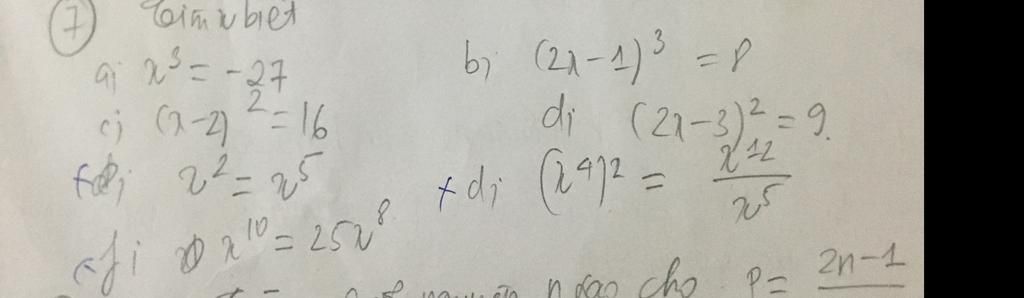 ⑦ Tìm x biết
a; x³ = -27 b; (2x-1)³ = 8
c; (x-2)² = 16 d; (2x-3)² = 9.
x² = x⁵ + d; (x⁴)² = x¹²/x⁵
f; x¹⁰ = 25x⁸
n sao cho P = 2n-1